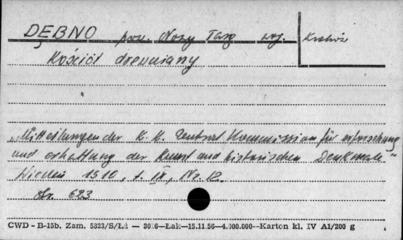 DĘBNO pow. Nowy Targ woj. Kraków
Kościół drewniany
„Mitteilungen der K. K. Zentral Kommission für erforschung
und erhaltung der Kunst und historischen Denkmale"
Wiedeń 1910, t. IX, Nr. 12.
str. 623
CWD - B-15b. Zam. 5323/S/L1 — 30/6—Łak—15.11.56—4.000.000—Karton kl. IV A1/200 g